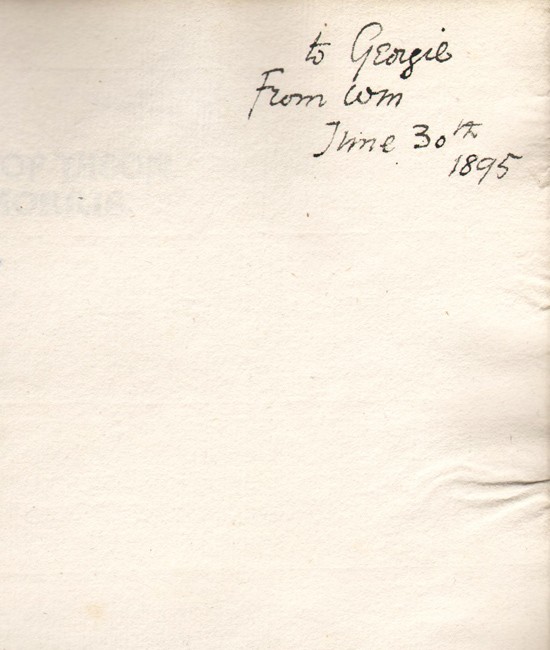 to Georgie
From WM
June 30th
1895